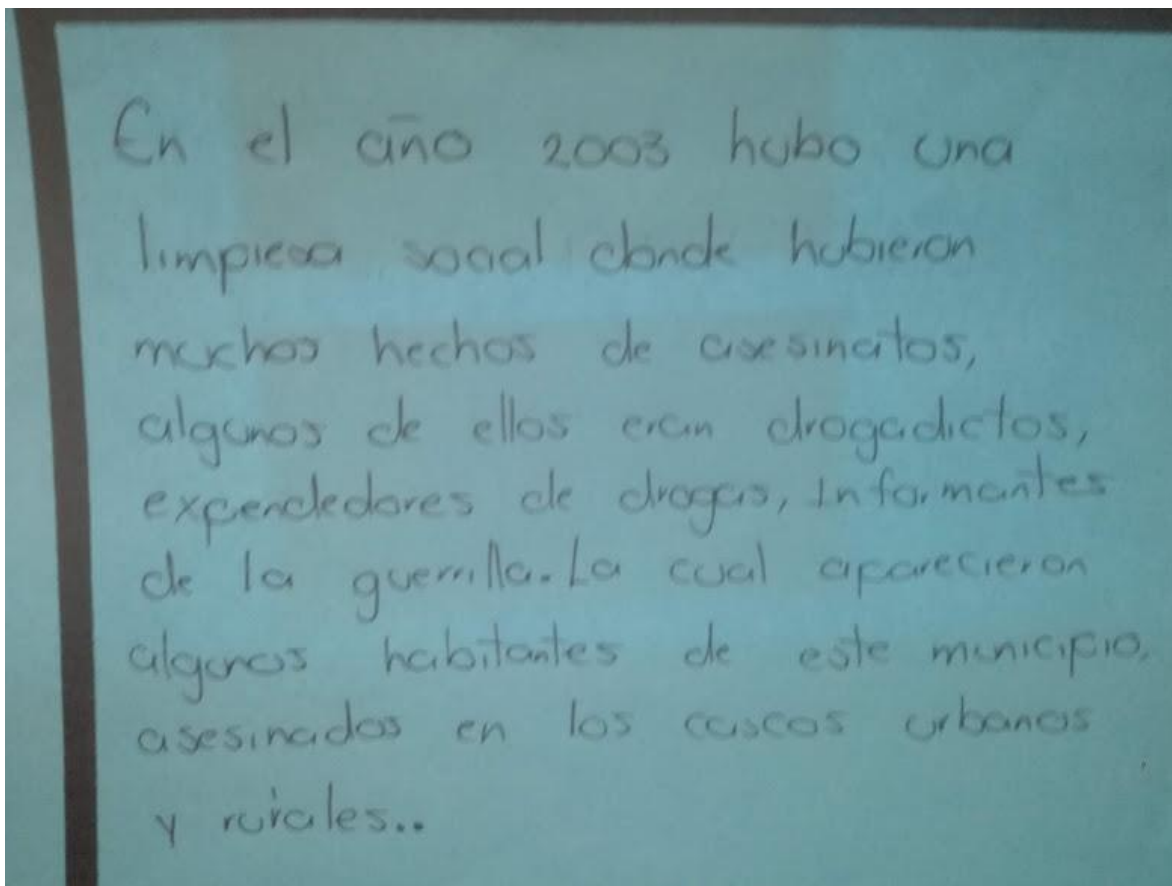 En el año 2003 hubo una
limpiesa social donde hubieron
muchos hechos de asesinatos,
algunos de ellos eran drogadictos,
expendedores de drogas, Informantes
de la guerrilla. La cual aparecieron
algunos habitantes de este municipio.
asesinados en los cascos urbanos
y rurales..